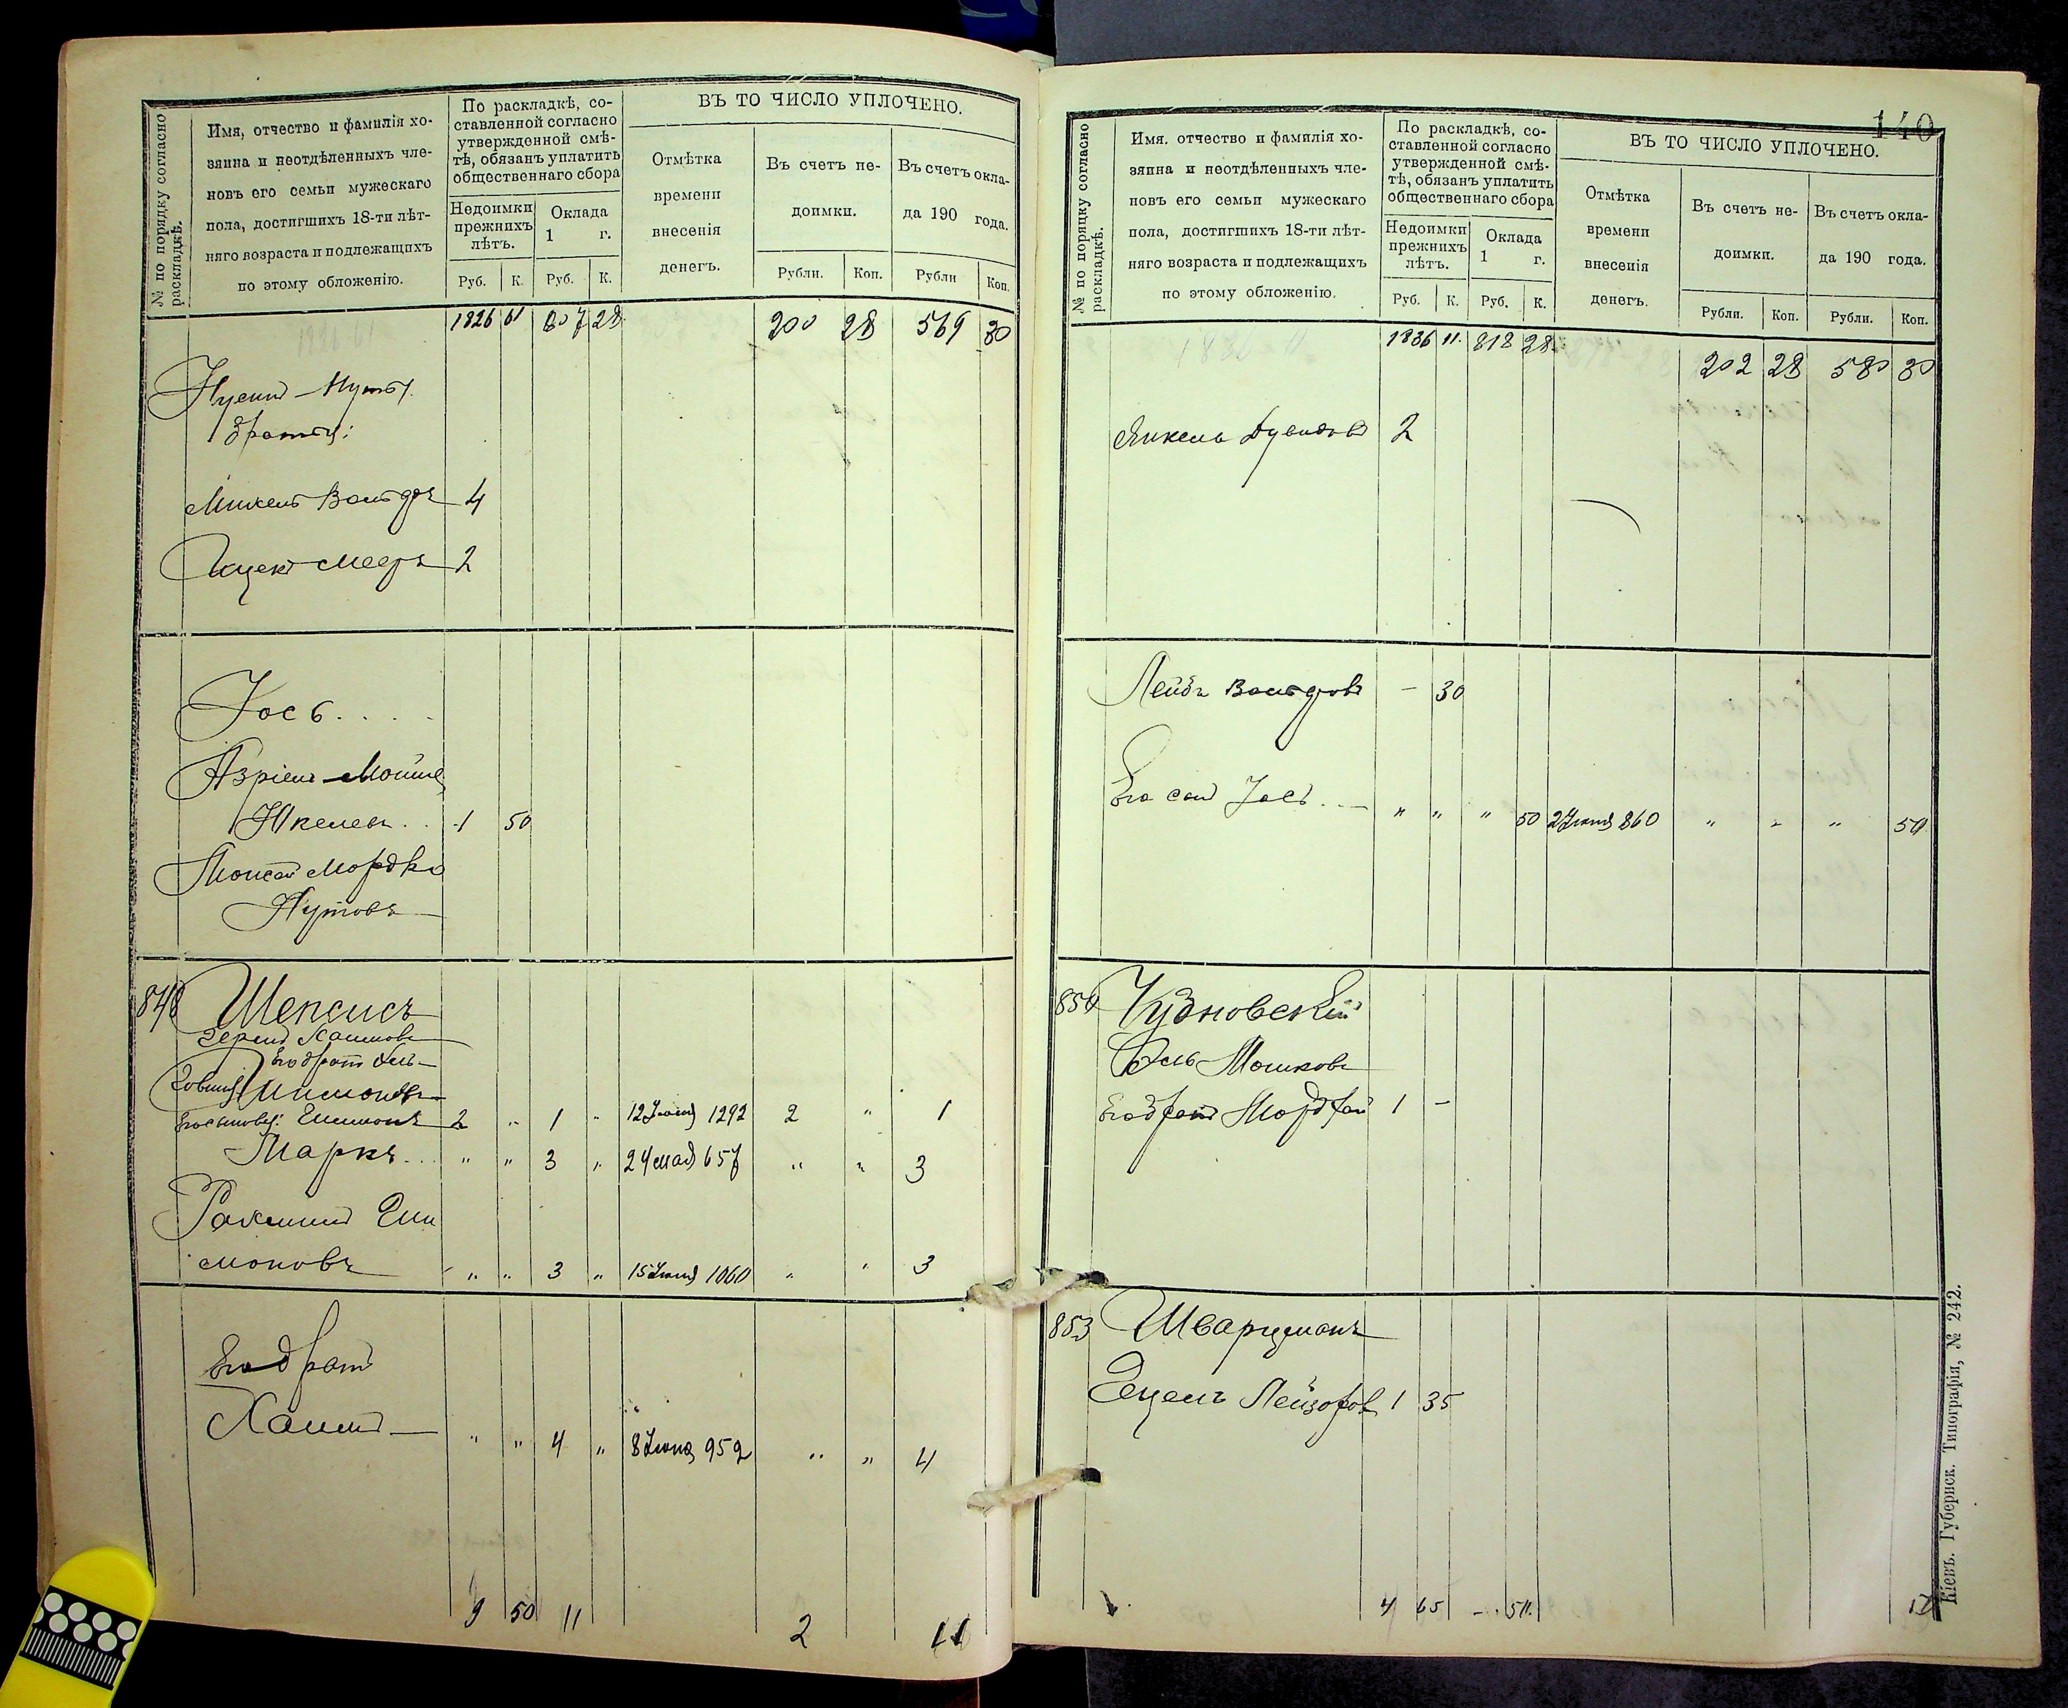 № по порядку согласно раскладкѣ.
Имя, отчество и фамилія хо-
зяина и неотдѣленныхъ чле-
новъ его семьи мужескаго
пола, достигшихъ 18-ти лѣт-
няго возраста и подлежащихъ
по этому обложенію.
По раскладкѣ, со-
ставленной согласно
утвержденной смѣ-
тѣ, обязанъ уплатить
общественнаго сбора
Недоимки
прежнихъ
лѣтъ.
Оклада
1 г.
Руб. К. Руб. К.
ВЪ ТО ЧИСЛО УПЛОЧЕНО.
Отмѣтка
времени
внесенія
денегъ.
Въ счетъ не-
доимки.
Въ счетъ окла-
да 190 года.
Рубли. Коп. Рубли Коп.
1826 61 807 28 200 28 569 30
Нусинъ
братья:
4
2
Іось
Азріель Мойше
1 50
Мордко
Нутовъ
848 Шепсисъ
Его братъ
Шимонъ 2 " 1 " 12 Іюня 1292 2 " 1
Маркъ " " 3 " 24 мая 657 " " 3
моновъ " " 3 " 15 Іюня 1060 " " 3
Его братъ
Хаимъ " " 4 " 8 Іюня 952 " " 4
9 50 11 2 11
140
№ по порядку согласно раскладкѣ.
Имя. отчество и фамилія хо-
зяина и неотдѣленныхъ чле-
новъ его семьи мужескаго
пола, достигшихъ 18-ти лѣт-
няго возраста и подлежащихъ
по этому обложенію.
По раскладкѣ, со-
ставленной согласно
утвержденной смѣ-
тѣ, обязанъ уплатить
общественнаго сбора
Недоимки
прежнихъ
лѣтъ.
Оклада
1 г.
Руб. К. Руб. К.
ВЪ ТО ЧИСЛО УПЛОЧЕНО.
Отмѣтка
времени
внесенія
денегъ.
Въ счетъ не-
доимки.
Въ счетъ окла-
да 190 года.
Рубли. Коп. Рубли. Коп.
1836 11 818 28 202 28 580 30
Янкель Дувидовъ 2
Лейбъ Вольфовъ - 30
Его сынъ Іось " " " 50 2 Іюня 860 " " " 50
850 Чудновскій
Мошковъ
Его братъ 1 -
853 Шварцманъ
Лейзоров 1 35
4 65 - 50 50
Кіевъ. Губернск. Типографія, № 242.